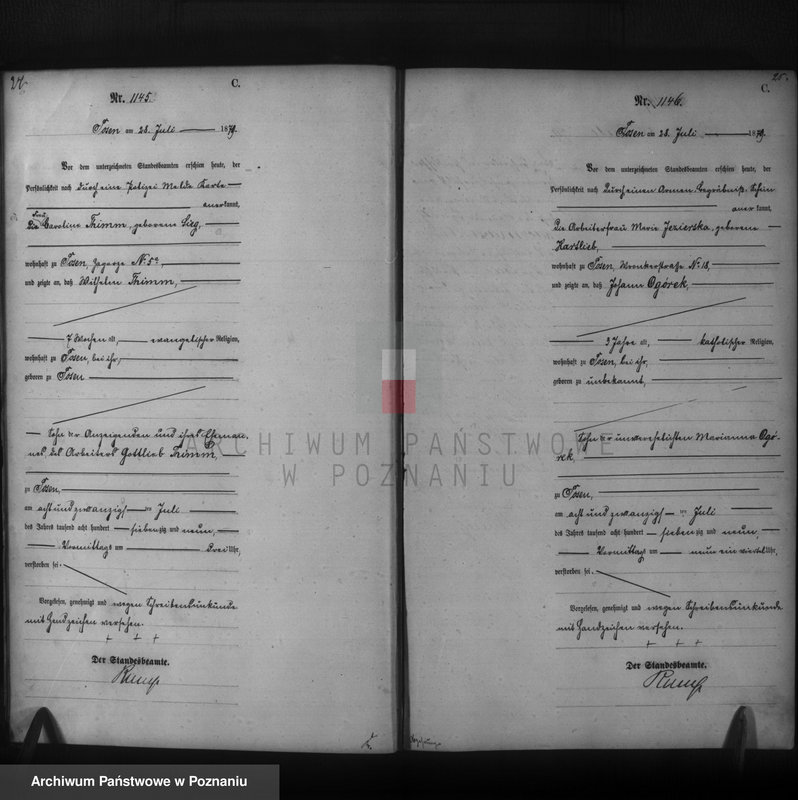 24.
C.
Nr. 1145.
Posen am 28. Juli 1879.
Vor dem unterzeichneten Standesbeamten erschien heute, der
Persönlichkeit nach durch eine Polizei Melde Karte
anerkannt,
Frau
Die Caroline Thimm, geborene Sieg,
wohnhaft zu Posen, Zagorze No 5a,
und zeigte an, daß Wilhelm Thimm,
7 Wochen alt, evangelischer Religion,
wohnhaft zu Posen, bei ihr,
geboren zu Posen
Sohn der Anzeigenden und ihres Eheman-
nes, des Arbeiters Gottlieb Thimm,
zu Posen,
am acht und zwanzigsten Juli
des Jahres tausend acht hundert siebenzig und neun,
Vormittags um drei Uhr,
verstorben sei.
Vorgelesen, genehmigt und wegen Schreibensunkunde
mit Handzeichen versehen.
+ + +
Der Standesbeamte.
25.
C.
Nr. 1146.
Posen am 28. Juli 1879.
Vor dem unterzeichneten Standesbeamten erschien heute, der
Persönlichkeit nach durch einen Armen-Begräbniß-Schein
anerkannt,
Die Arbeiterfrau Marie Jezierska, geborene
Hartlieb,
wohnhaft zu Posen, Wronkerstraße No 18,
und zeigte an, daß Johann Ogórek,
3 Jahre alt, katholischer Religion,
wohnhaft zu Posen, bei ihr,
geboren zu unbekannt,
Sohn der unverehelichten Marianna Ogó-
rek,
zu Posen,
am acht und zwanzigsten Juli
des Jahres tausend acht hundert siebenzig und neun,
Vormittags um neun ein viertel Uhr,
verstorben sei.
Vorgelesen, genehmigt und wegen Schreibensunkunde
mit Handzeichen versehen.
+ + +
Der Standesbeamte.
ARCHIWUM PAŃSTWOWE
W POZNANIU
Archiwum Państwowe w Poznaniu